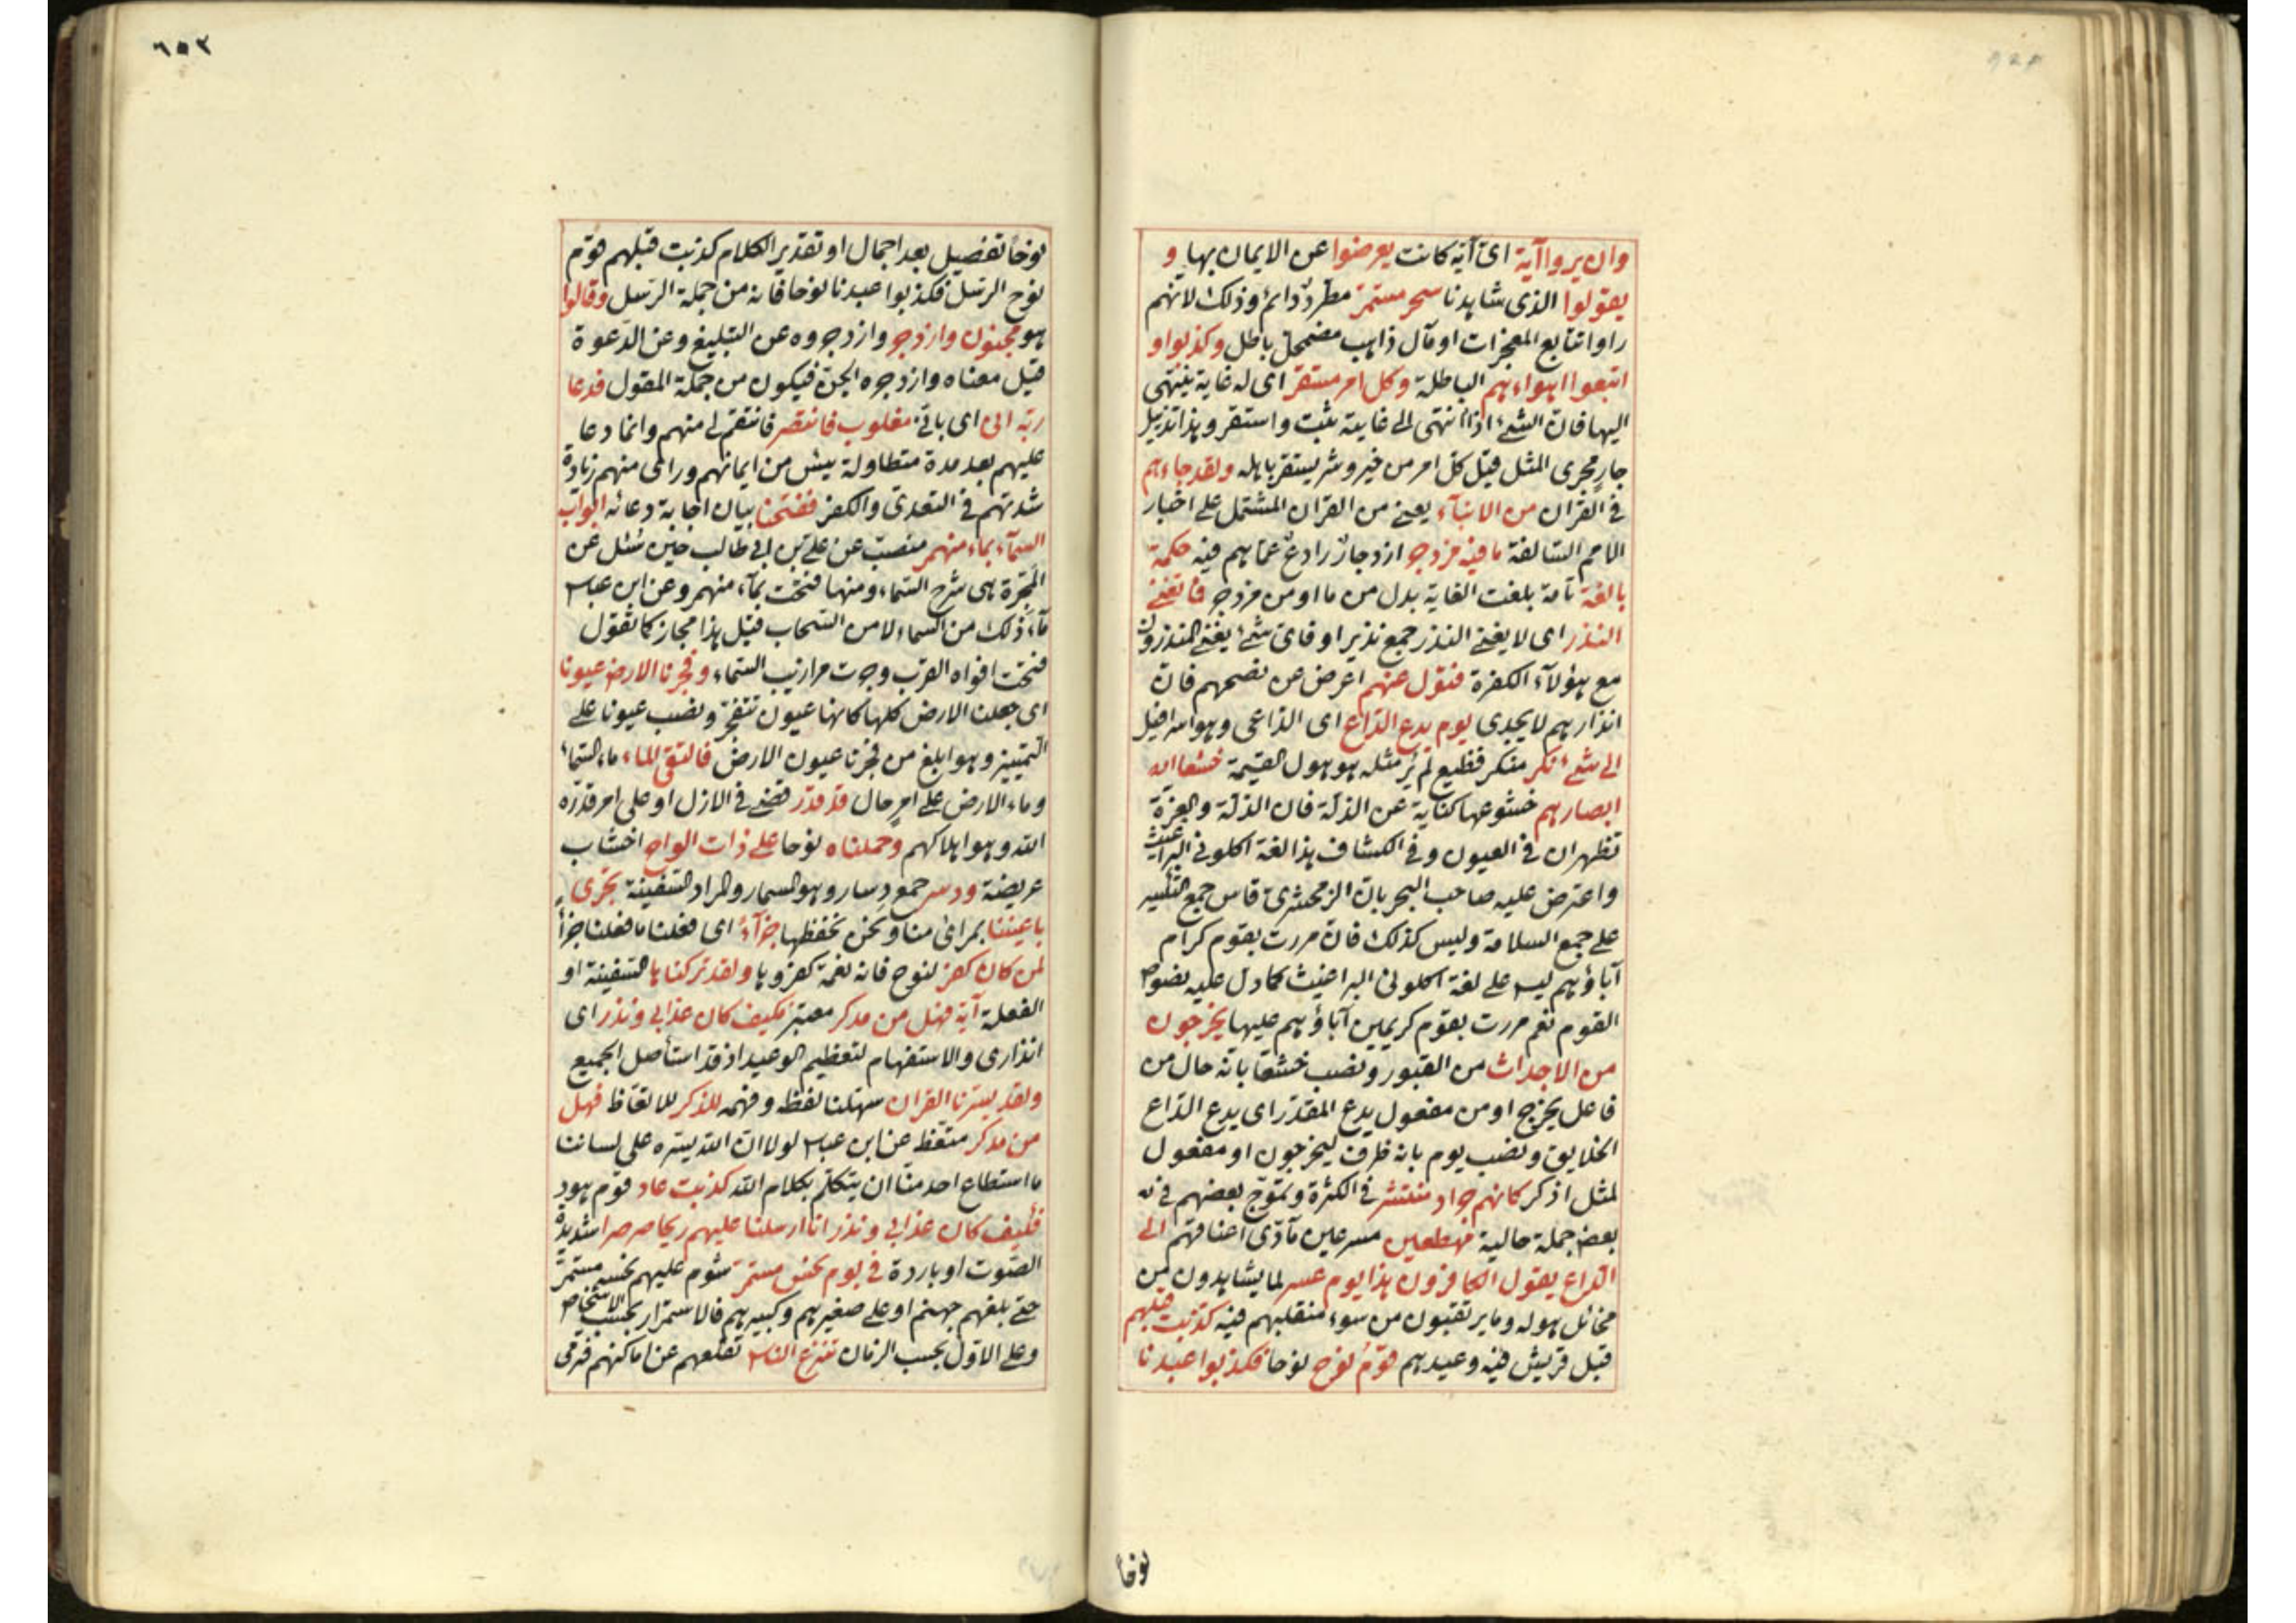 وان يروا آية اى آية كانت يعرضوا عن الايمان بها و
يقولوا الذى شاهدنا سحر مستمرّ مطّرد دائم وذلك لانهم
راوا تتابع المعجزات او مآل ذاهب مضمحل باطل وكذبوا و
اتبعوا اهواءهم الباطلة وكل امر مستقر اى له غاية ينتهى
اليها فان الشئ اذا انتهى الى غايته ثبت واستقر وهذا تذييل
جارٍ مجرى المثل قيل كل امر من خير وشر يستقر باهله ولقد جاءهم
فى القران من الانباء يعنى من القران المشتمل على اخبار
الامم السالفة ما فيه مزدجر ازدجار رادع عما هم فيه حكمة
بالغة تامة بلغت الغاية بدل من ما او من مزدجر فما تغنى
النذر اى لا يغنى النذر جمع نذير او فاى شئ يغنى المنذرون
مع هؤلاء الكفرة فتول عنهم اعرض عن نصحهم فان
انذارهم لا يجدى يوم يدع الداع اى الداعى وهو اسرافيل
الى شئ نكر منكر فظيع لم ير مثله هو هول القيمة خشعا
ابصارهم خشوعها كناية عن الذلة فان الذلة والعزة
تظهران فى العيون وفى الكشاف هذا لغة اكلونى البراغيث
واعترض عليه صاحب البحر بان الزمخشرى قاس جمع التكسير
على جمع السلامة وليس كذلك فان مررت بقوم كرام
آباؤهم ليس على لغة اكلونى البراغيث كما دل عليه نصوص
القوم نعم مررت بقوم كريمين آباؤهم عليها يخرجون
من الاجداث من القبور ونصب خشعا بانه حال من
فاعل يخرج او من مفعول يدع المقدر اى يدع الداع
الخلايق ونصب يوم بانه ظرف ليخرجون او مفعول
لمثل اذكر كانهم جراد منتشر فى الكثرة وتموّج بعضهم فى
بعض جملة حالية مهطعين مسرعين مآدّى اعناقهم الى
الداع يقول الكافرون هذا يوم عسر لما يشاهدون من
مخائل هوله وما يرتقبون من سوء منقلبهم فيه كذبت قبلهم
قبل قريش فيه وعيدهم قوم نوح نوحا فكذبوا عبدنا
نوحاً
٦٥٢
نوحاً تفصيل بعد اجمال او تقدير الكلام كذبت قبلهم قوم
نوح الرسل فكذبوا عبدنا نوحا فانه من جملة الرسل وقالوا
هو مجنون وازدجر وازدجروه عن التبليغ وعن الدعوة
قيل معناه وازدجره الجن فيكون من جملة المقول فدعا
ربه انى اى بانى مغلوب فانتصر فانتقم لى منهم وانما دعا
عليهم بعد مدة متطاولة يئس من ايمانهم وراى منهم زيادة
شدتهم فى التعدى والكفر ففتحنا بيان اجابة دعائه ابواب
السماء بماء منهمر منصبّ عن على بن ابى طالب حين سئل عن
المجرة هى شرج السماء ومنها فتحت بماء منهمر وعن ابن عباس
ماء ذلك من السماء لا من السحاب قيل هذا مجاز كما تقول
فتحت افواه القرب وجرت مرازيب السماء وفجرنا الارض عيونا
اى جعلنا الارض كلها كانها عيون تتفجّر ونصب عيونا على
التمييز وهو ابلغ من فجرنا عيون الارض فالتقى الماء ماء السماء
وماء الارض على امرٍ حال قد قدر قضى فى الازل او على امر قدّره
الله وهو اهلاكهم وحملناه نوحا على ذات الواح اخشاب
عريضة ودسر جمع دسار وهو المسمار والمراد السفينة تجرى
باعيننا بمراى منا ونحن نحفظها جزآءً اى فعلنا ما فعلنا جزأ
لمن كان كفر لنوح فانه نعمة كفروها ولقد تركناها السفينة او
الفعلة آية فهل من مدكر معتبر فكيف كان عذابى ونذر اى
انذارى والاستفهام لتعظيم الوعيد اذ قد استأصل الجميع
ولقد يسرنا القران سهلنا لفظه وفهمه للذكر للاتعاظ فهل
من مدكر متعظ عن ابن عباس لولا ان الله يسّره على لساننا
ما استطاع احد منّا ان يتكلم بكلام الله كذبت عاد قوم هود
فكيف كان عذابى ونذر انا ارسلنا عليهم ريحا صرصرا شديدة
الصوت او باردة فى يوم نحس مستمرّ شوم عليهم نحسه مستمرّ
حتى بلغهم جهنم او على صغيرهم وكبيرهم فالاستمرار بحسب الاشخاص
وعلى الاول بحسب الزمان تنزع الناس تقلعهم عن اماكنهم فترمى